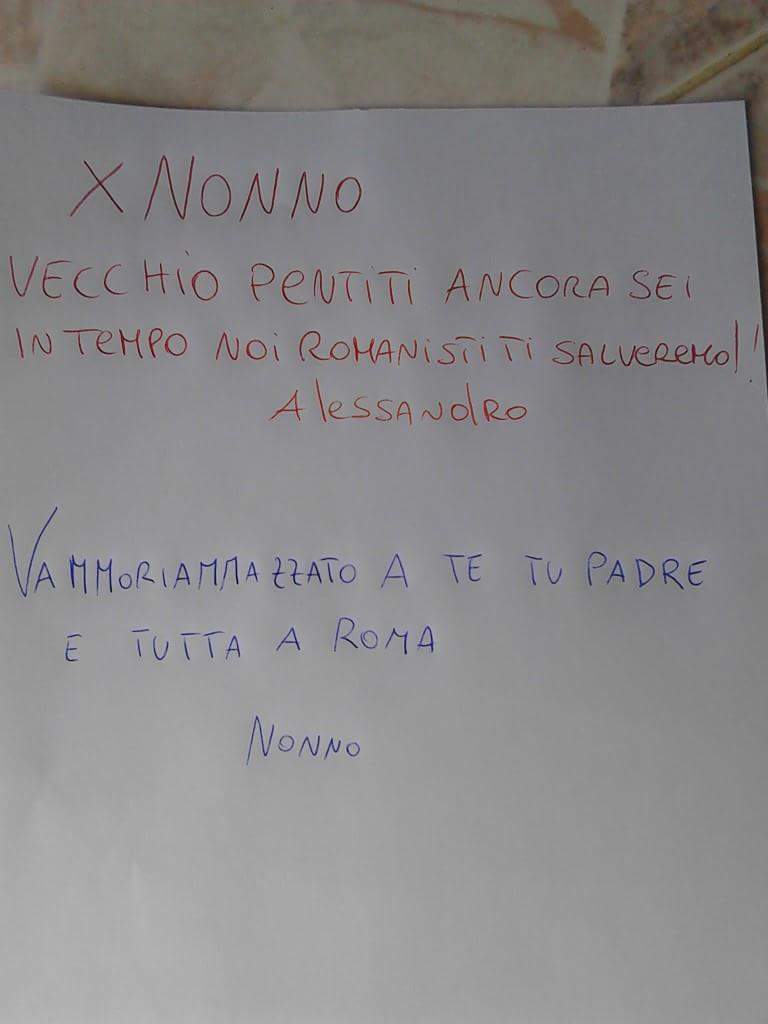 X NONNO
VECCHIO PENTITI ANCORA SEI
IN TEMPO NOI ROMANISTI TI SALVEREMO!!
ALESSANDRO
VAMMORIAMMAZZATO A TE TU PADRE
E TUTTA A ROMA
NONNO